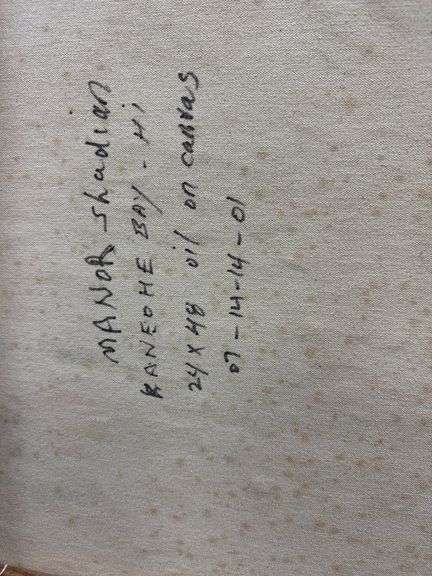 MANOR Shadian
KANEOHE BAY - Hi
24 x 48 oil on canvas
07-14-14-01